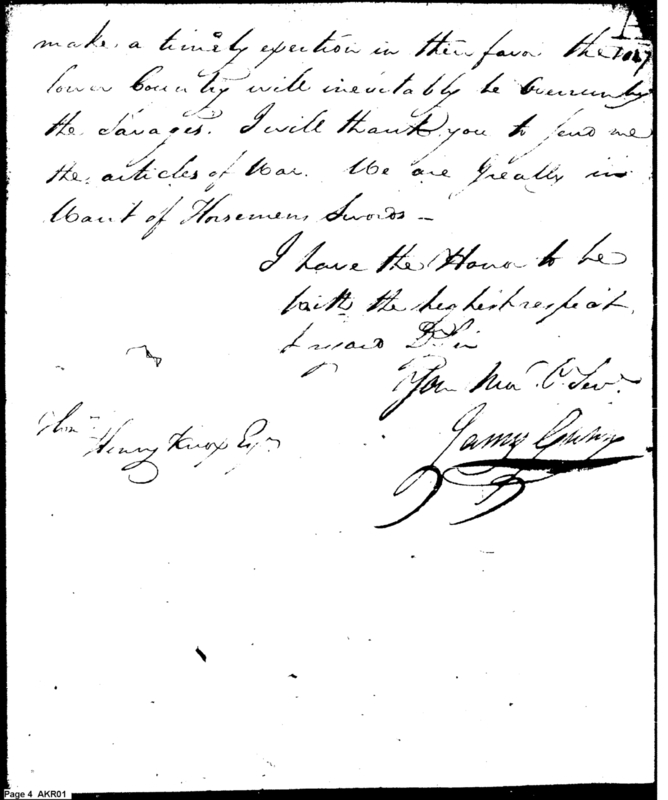 make a timely exertion in their favor the
lower Country will inevitably be Overrun by
the Savages. I will thank you to send me
the articles of War. We are greatly in
Want of Horsemens Swords –
I have the Honor to be
with the highest respect
& regard Dr Sir
Your Mo. O. Serv.
Honble
Henry Knox Esqr
Page 4 AKR01